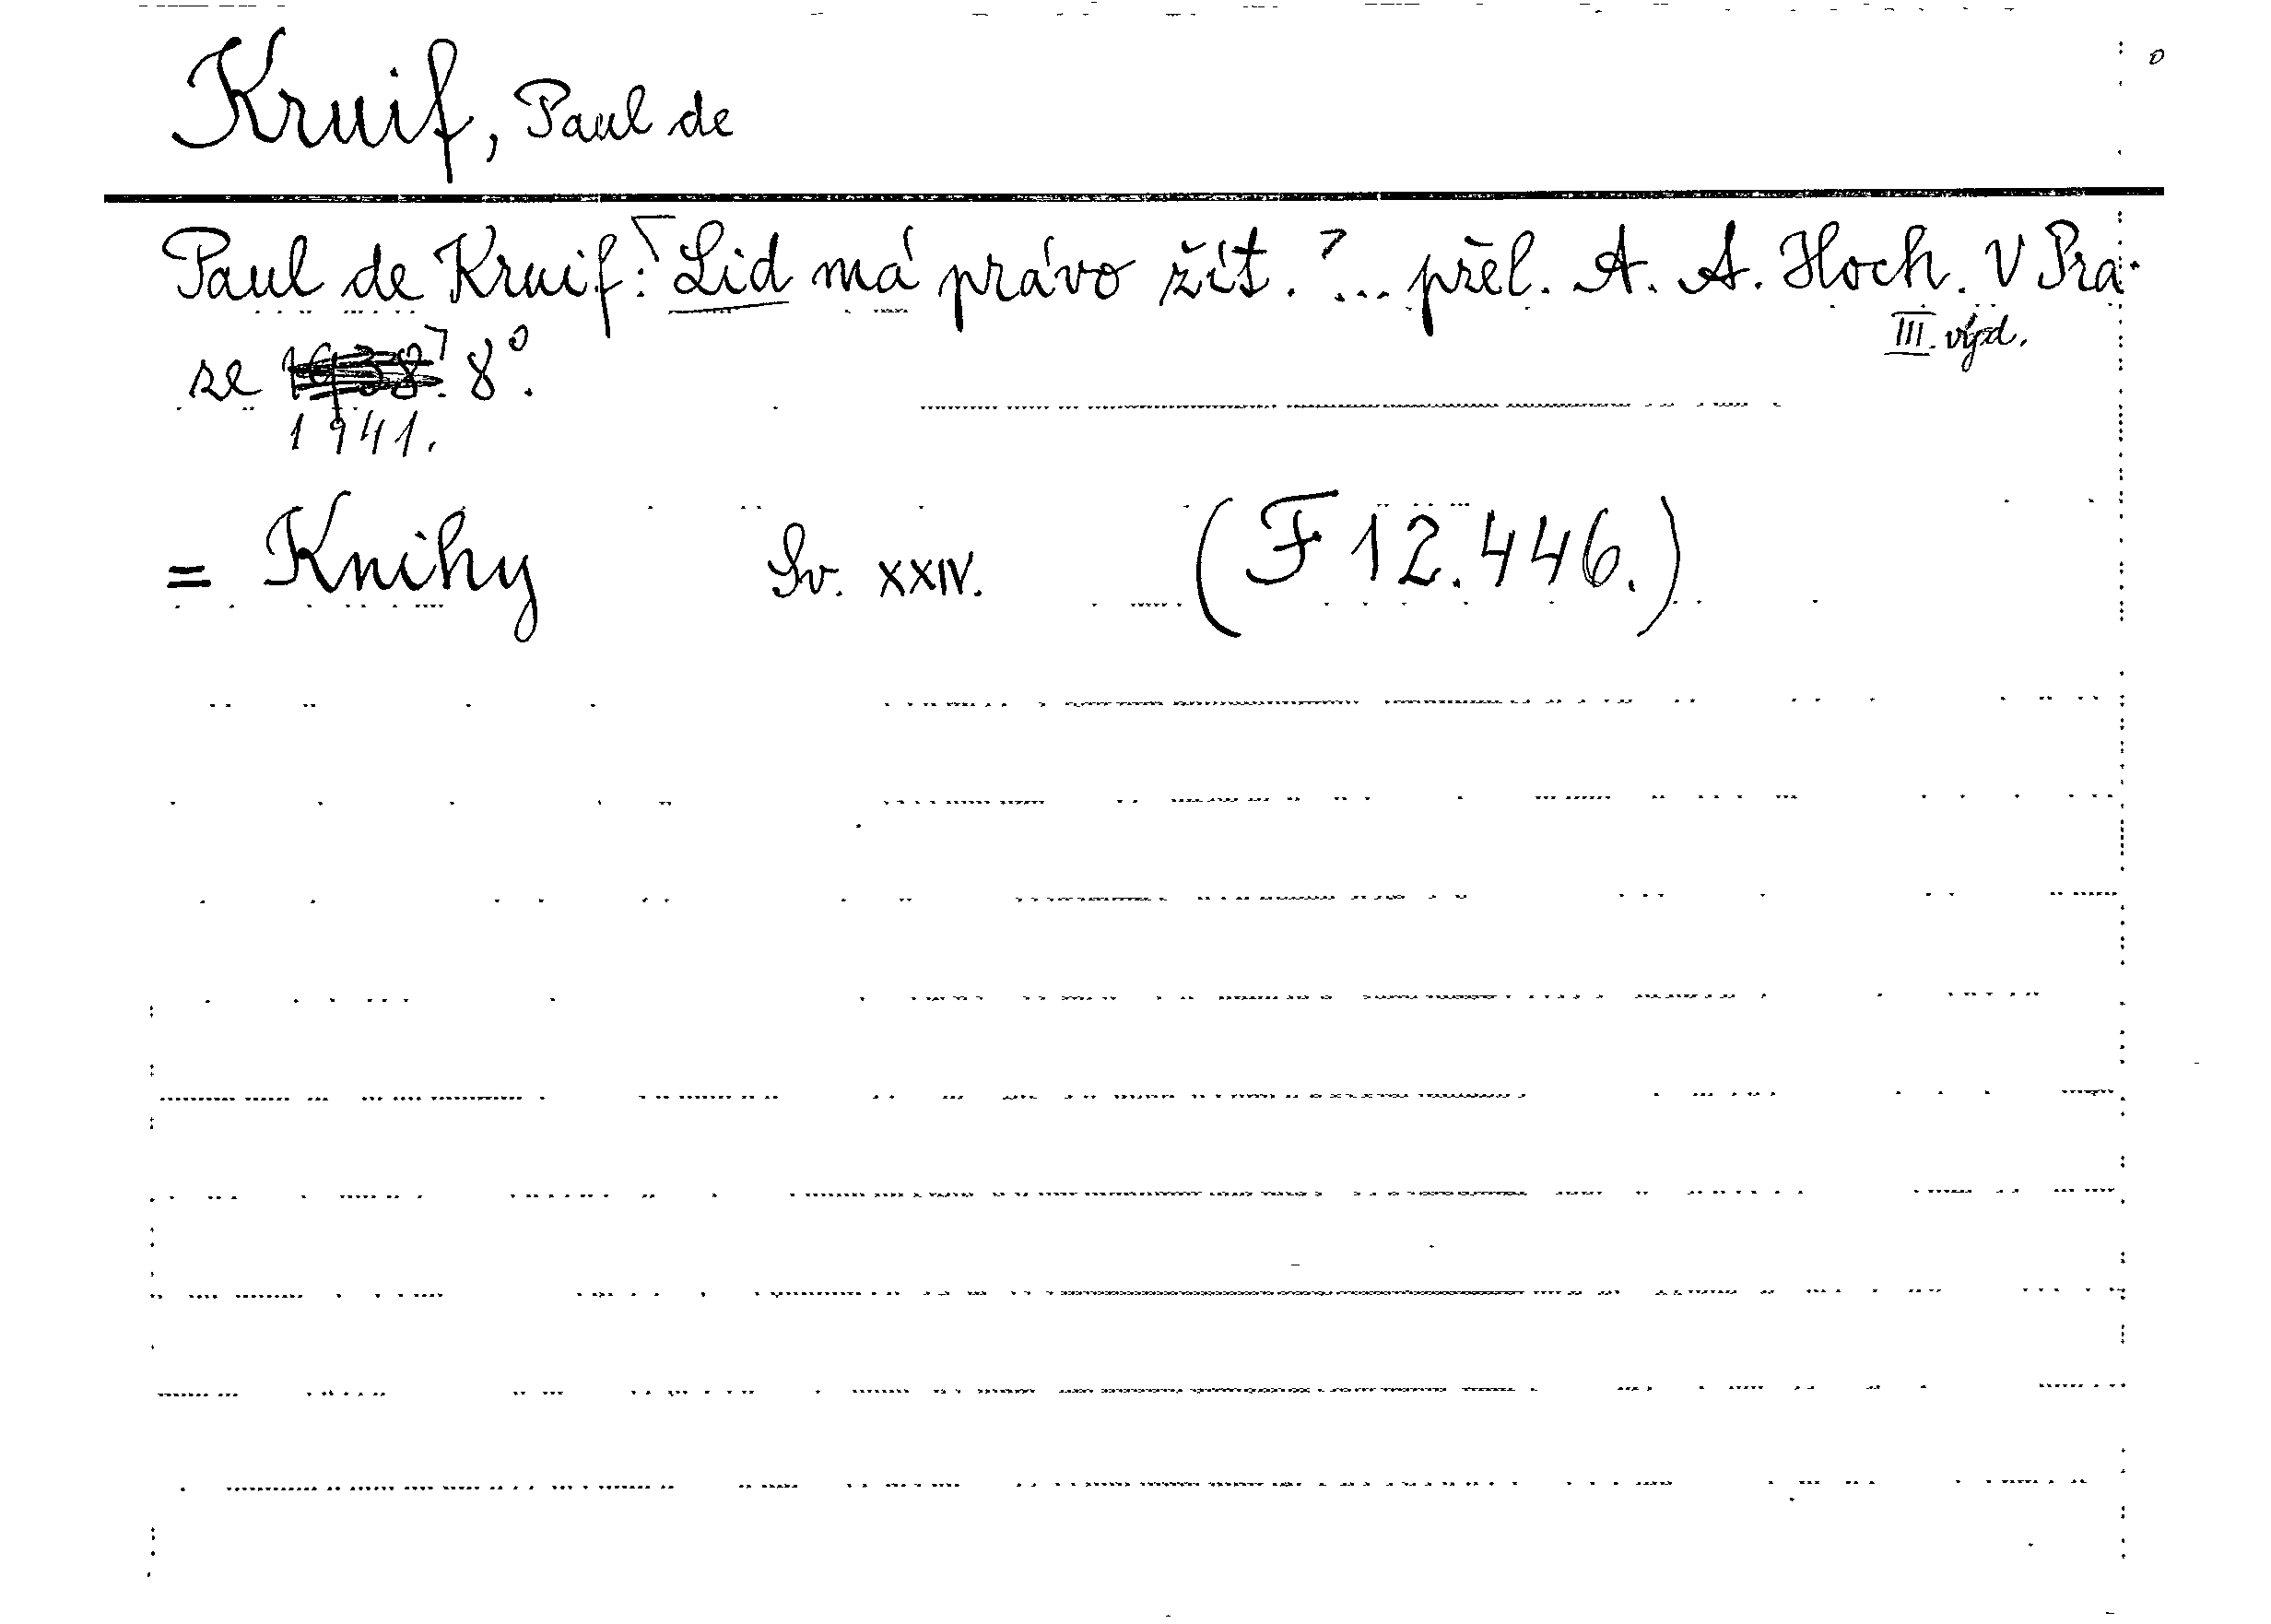 Kruif, Paul de
Paul de Kruif: ⌈Lid má právo žít. ⌉... přel. A. A. Hoch. V Pra-
III. vyd.
ze 1938⌉. 8°.
1941.
= Knihy Sv. XXIV. (F 12.446.)